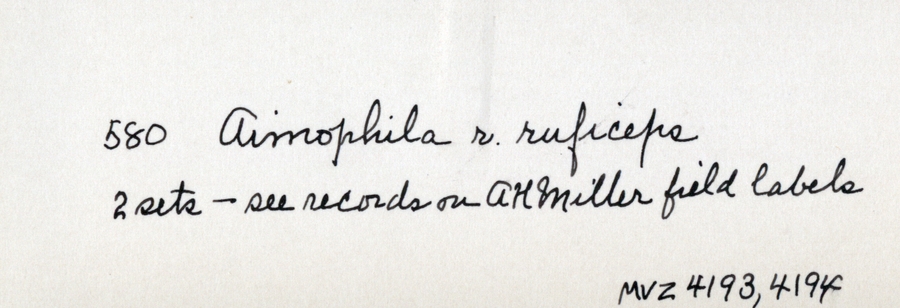 580 Aimophila r. ruficeps
2 sets – see records on AHMiller field labels
MVZ 4193, 4194